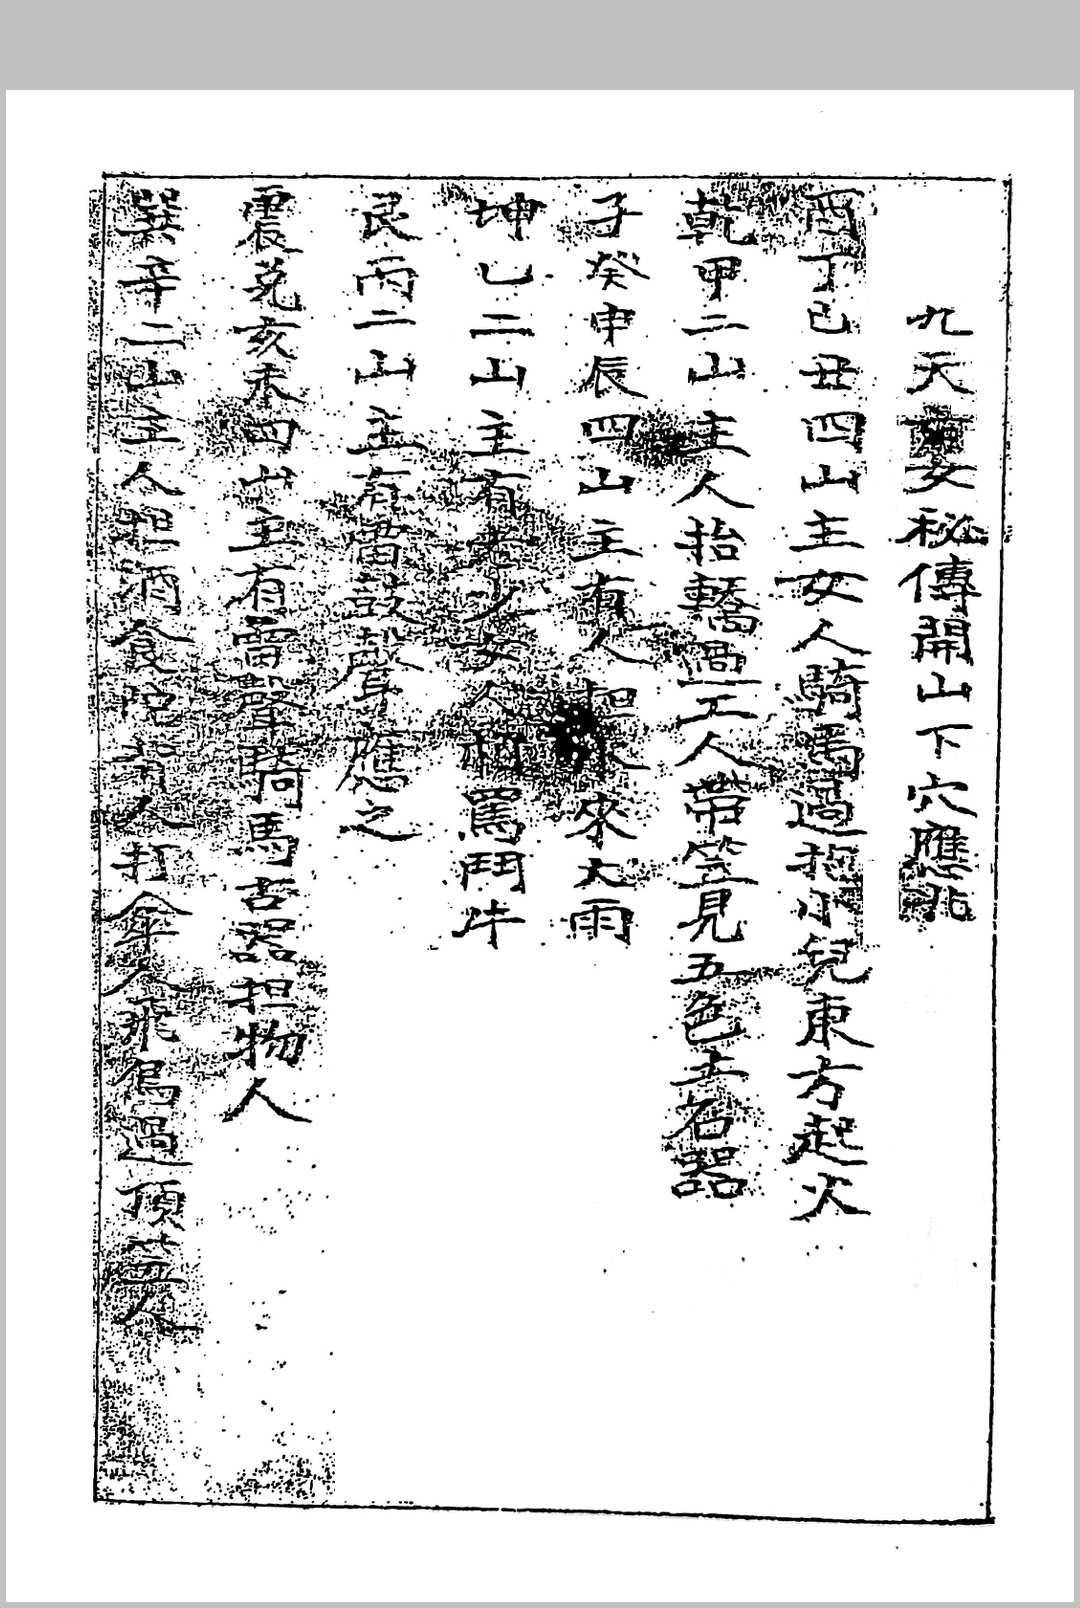 九天玄女秘傳開山下穴應兆
酉丁己丑四山主女人騎馬過抱小兒東方起火
乾甲二山主人抬轎高工人帶笠見五色土石器
子癸申辰四山主有人担水來大雨
坤乙二山主有老少女人相罵鬥牛
艮丙二山主有雷鼓聲應之
震兌亥未四山主有雷聲騎馬古器担物人
巽辛二山主人担酒食人打傘人飛鳥過頂人